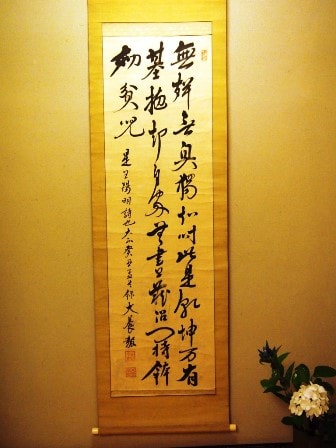 無聲無臭獨知時此是乾坤万有
基抛却自家無盡藏沿門持鉢
効貧兒 是王陽明詩也 大正癸丑 犬養毅